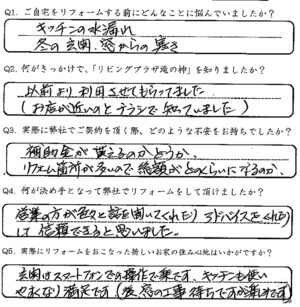 Q1. ご自宅をリフォームする前にどんなことに悩んでいましたか?
キッチンの水漏れ
冬の玄関、窓からの寒さ
Q2. 何がきっかけで、「リビングプラザ進の神」を知りましたか?
以前より利用させてもらってました
(お店が近いのとチラシで知っていました)
Q3. 実際に弊社でご契約を頂く際、どのような不安をお持ちでしたか?
補助金が貰えるのかどうか、
リフォーム箇所が多いので総額がどのくらいになるのか、
Q4. 何が決め手となって弊社でリフォームをして頂けましたか?
営業の方が色々と話を聞いてくれたり アドバイスをくれたり
して 信頼できると思いました。
Q5. 実際にリフォームをおこなった新しいお家の住み心地はいかがですか?
玄関はスマートフォンでの操作で楽です、キッチンも使い
やすくなり満足です(後、窓の工事待ちですが楽しみです)